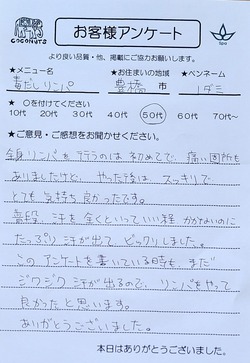 COCONUTS
お客様アンケート
spa
より良い品質・他、掲載にご協力お願いします。
★メニュー名 ★お住まいの地域 ★ペンネーム
毒だしリンパ 豊橋 市 リダミ
★ ○を付けてください
10代 20代 30代 40代 50代 60代 70代
★ご意見・ご感想をお聞かせください
全身リンパを行うのは初めてで、痛い箇所も
ありましたけど、やった後は、スッキリで
とても気持ち良かったです。
普段、汗を全くといっていい程かかないのに
たっぷり汗が出て、ビックリしました。
このアンケートを書いている時も、まだ
ジワジワ汗が出るので、リンパをやって
良かったと思います。
ありがとうございました。
本日はありがとうございました。